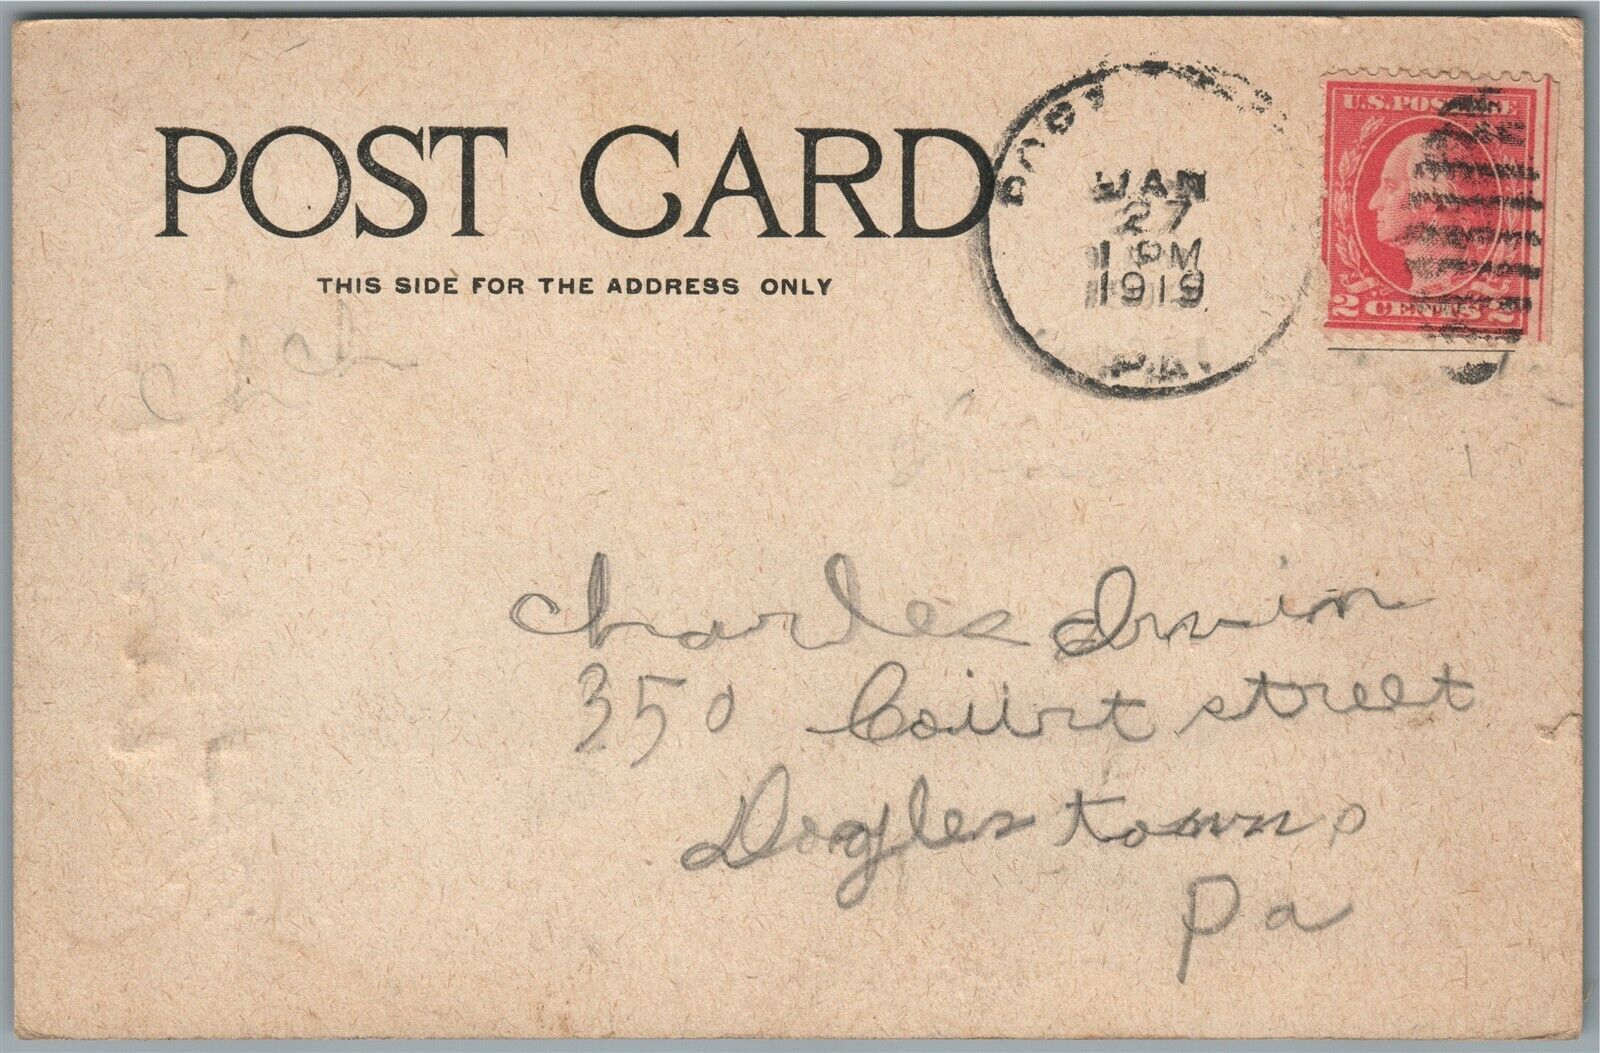 POST CARD
THIS SIDE FOR THE ADDRESS ONLY
JAN
27
1 PM
1919
PA.
U.S. POSTAGE
2 CENTS 2
Charles Irwin
350 Court street
Doylestown
Pa